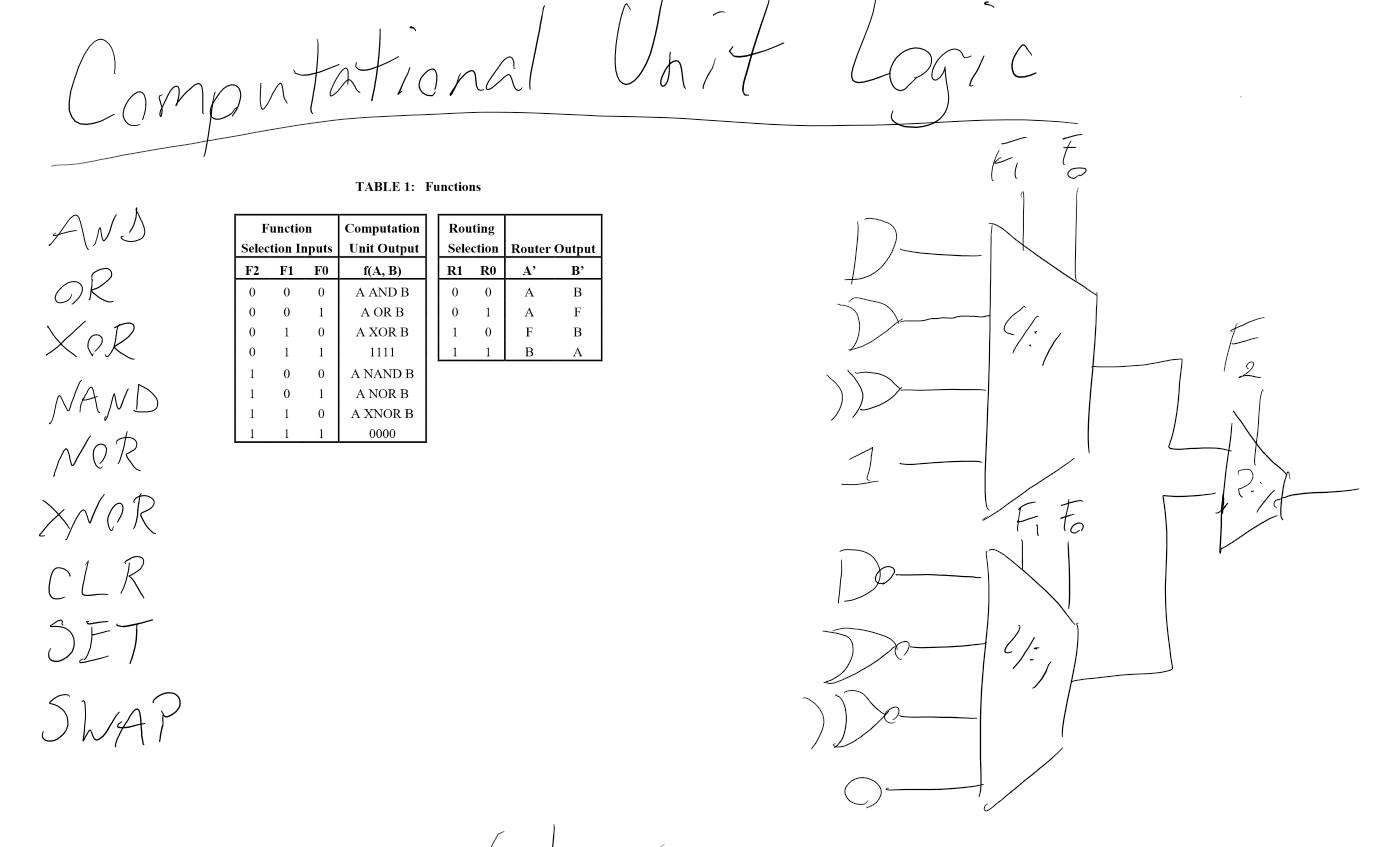 Computational Unit Logic
AND
OR
XOR
NAND
NOR
XNOR
CLR
SET
SWAP
TABLE 1: Functions
Function Computation
Selection Inputs Unit Output
F2 F1 F0 f(A, B)
0 0 0 A AND B
0 0 1 A OR B
0 1 0 A XOR B
0 1 1 1111
1 0 0 A NAND B
1 0 1 A NOR B
1 1 0 A XNOR B
1 1 1 0000
Routing
Selection Router Output
R1 R0 A’ B’
0 0 A B
0 1 A F
1 0 F B
1 1 B A
F1 F0
4:1
1
F2
2:1
F1 F0
4:1
0